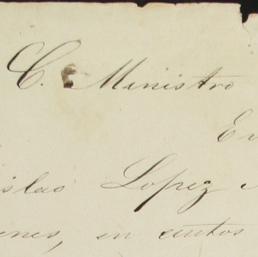 C. Ministro
E
islao Lopez
enes, en autos